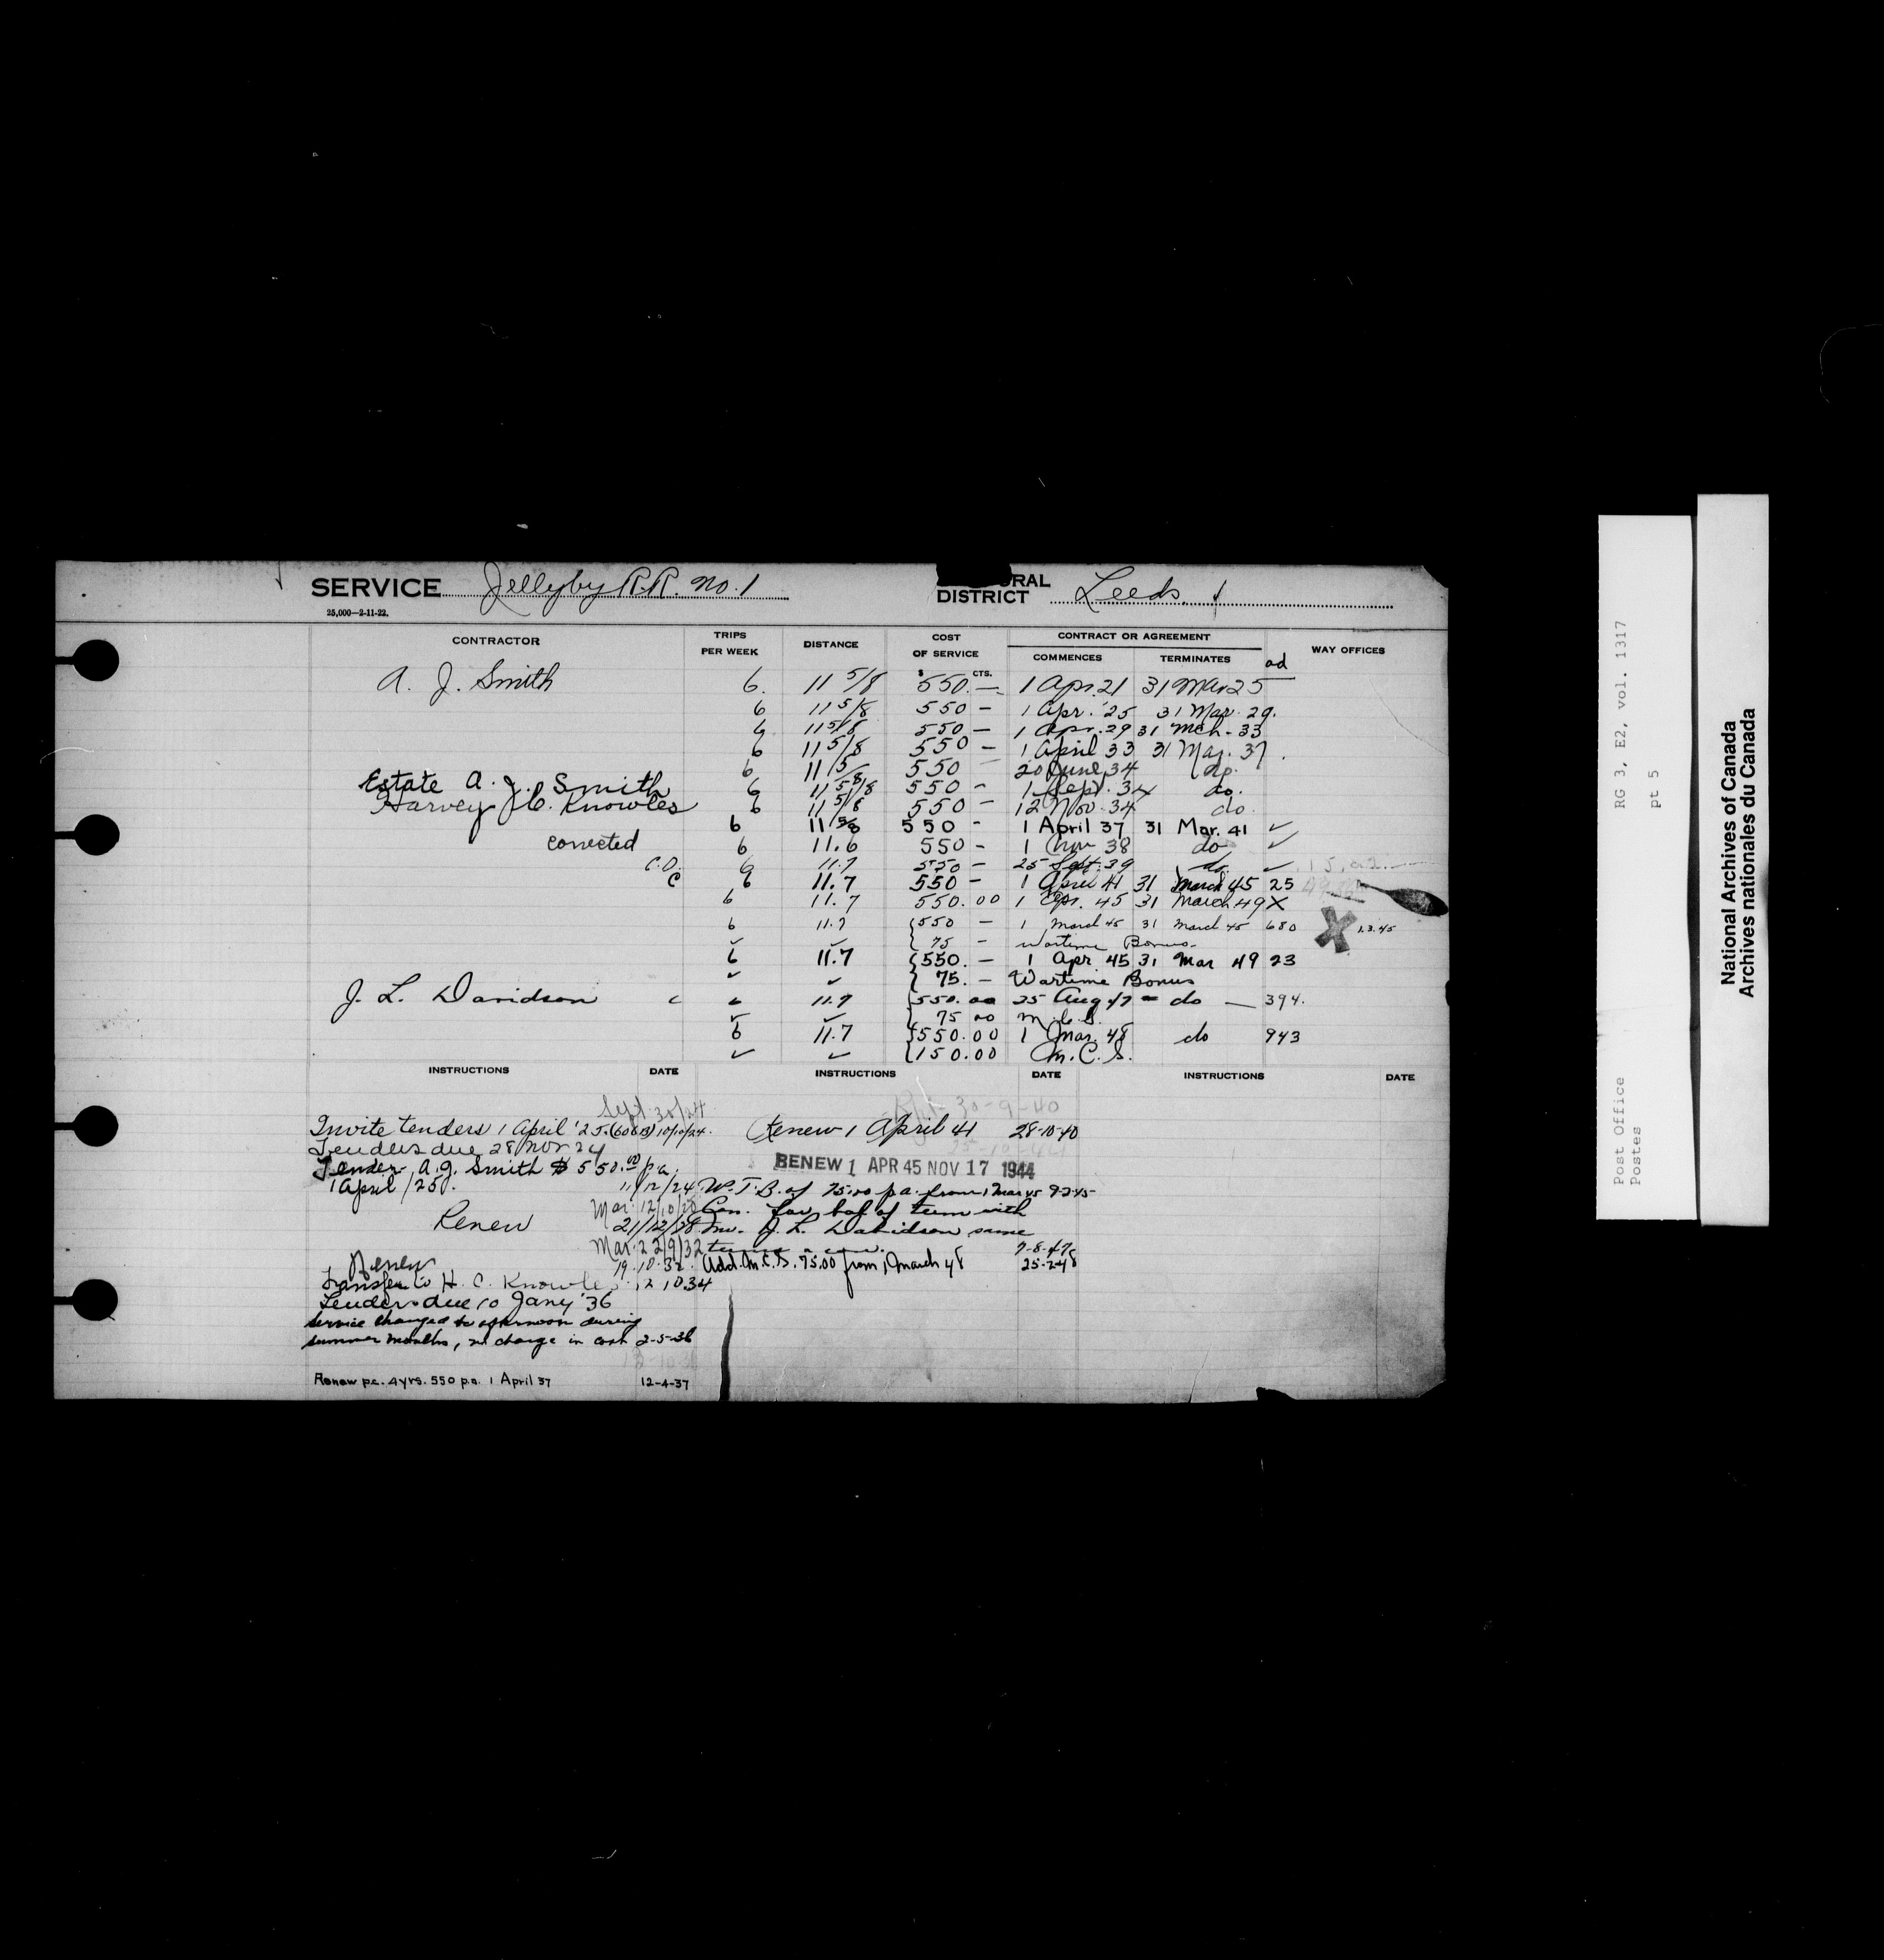 SERVICE Jellyby R.R. No. 1
25,000—2-11-22.
DISTRICT Leeds
CONTRACTOR TRIPS PER WEEK DISTANCE COST OF SERVICE CONTRACT OR AGREEMENT COMMENCES TERMINATES WAY OFFICES
$ CTS. ad
A. J. Smith 6. 11 5/8 550.— 1 Apr. 21 31 Mar 25
6 11 5/8 550 — 1 Apr. '25 31 Mar. 29.
6 11 5/8 550 — 1 Apr. 29 31 Mch. 33
6 11 5/8 550 — 1 April 33 31 Mar. 37.
6 11 5/8 550 — 20 June 34 do.
Estate A. J. Smith 6 11 5/8 550 — 1 Sept. 34 do.
Harvey C. Knowles 6 11 5/8 550 — 12 Nov. 34 do
6 11 5/8 550 - 1 April 37 31 Mar. 41 ✓
corrected 6 11.6 550 - 1 Nov 38 do ✓
C.D. 6 11.7 550 — 25 Sept. 39 do ✓
C 6 11.7 550 — 1 April 41 31 March 45 25
6 11.7 550.00 1 Apr. 45 31 March 49 X
6 11.7 {550 — 1 March 45 31 March 45 680 X 1.3.45
✓ ✓ {75 — Wartime Bonus.
6 11.7 {550. — 1 Apr 45 31 Mar 49 23
✓ ✓ {75. — Wartime Bonus
J. L. Davidson c 6 11.7 {550.00 25 Aug 47 — do — 394.
✓ ✓ {75 00 M.C.S.
6 11.7 {550.00 1 Mar. 48 do 943
✓ ✓ {150.00 M.C.S.
INSTRUCTIONS DATE INSTRUCTIONS DATE INSTRUCTIONS DATE
Sept 30/24
Invite tenders 1 April '25. (606B) 10/10/24.
Tenders due 28 Nov 24
Tender A. J. Smith $550.00 p.a.
1 April /25. 11/12/24
Mar. 12/10/28
Renew 21/12/28
Mar. 22/9/32
Renew 19.10.32.
Transfer to H. C. Knowles 12.10.34
Tenders due 10 Jany '36
Service changed to afternoon during
summer months, no change in cost 2-5-36
Renew p.c. 4 yrs. 550 p.a. 1 April 37 12-4-37
30-9-40
Renew 1 April 41 28-10-40
RENEW 1 APR 45 NOV 17 1944
W.T.B. of 75.00 p.a. from 1 Mar 45 9-2-45
Con. for bal of term with
Mr. J. L. Davidson same
terms 7-8-47
Add. M.C.S. 75.00 from 1 March 48 25-2-48
Post Office RG 3, E2, vol. 1317
Postes pt 5
National Archives of Canada
Archives nationales du Canada